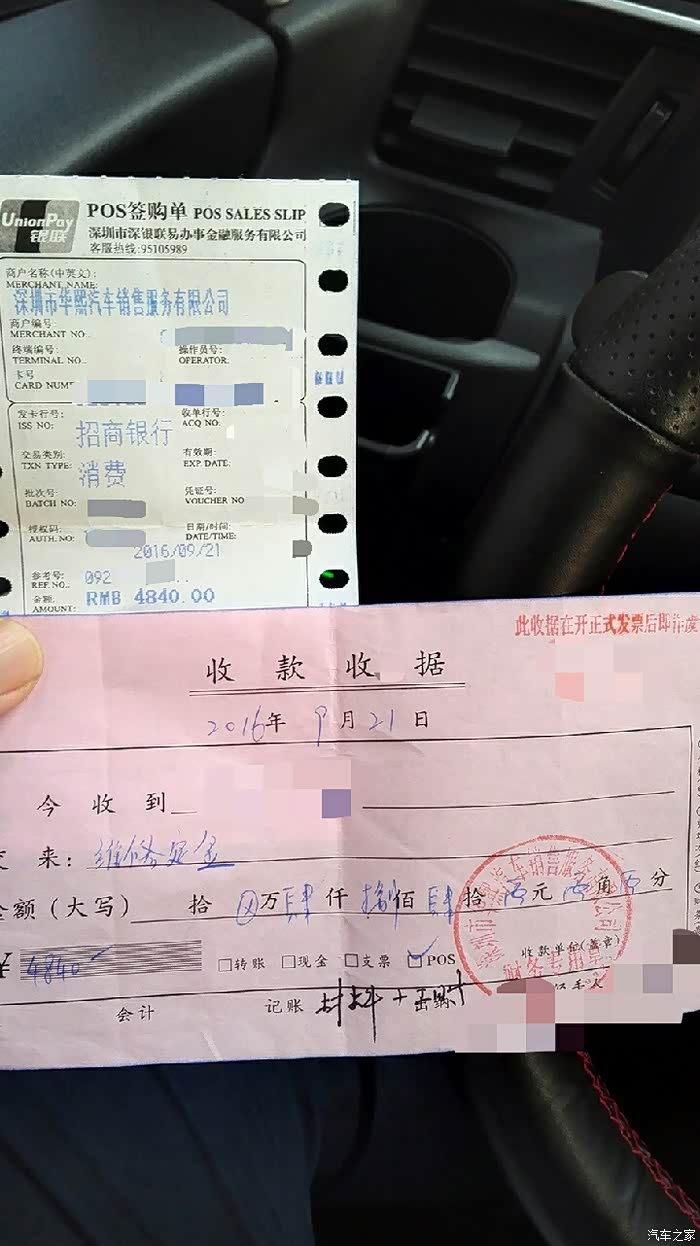 UnionPay
银联
POS签购单 POS SALES SLIP
深圳市深银联易办事金融服务有限公司
客服热线:95105989
商户名称(中英文):
MERCHANT NAME:
深圳市华熙汽车销售服务有限公司
商户编号:
MERCHANT NO.
终端编号: 操作员号:
TERMINAL NO. OPERATOR:
卡号
CARD NUM
发卡行号: 收单行号:
ISS NO: ACQ NO:
招商银行
交易类别: 有效期:
TXN TYPE: EXP DATE:
消费
批次号: 凭证号:
BATCH NO: VOUCHER NO
授权码: 日期/时间:
AUTH NO: DATE/TIME:
2016/09/21
参考号:
REF NO.. 092
金额:
AMOUNT: RMB 4840.00
此收据在开正式发票后即作废
收款收据
2016年9月21日
今收到
交来:维修定金
金额(大写) 拾 万肆仟捌佰肆拾 元 角 分
¥4840
□转账 □现金 □支票 ☑POS
收款单位(盖章)
财务专用章
会计 记账 出纳
汽车之家